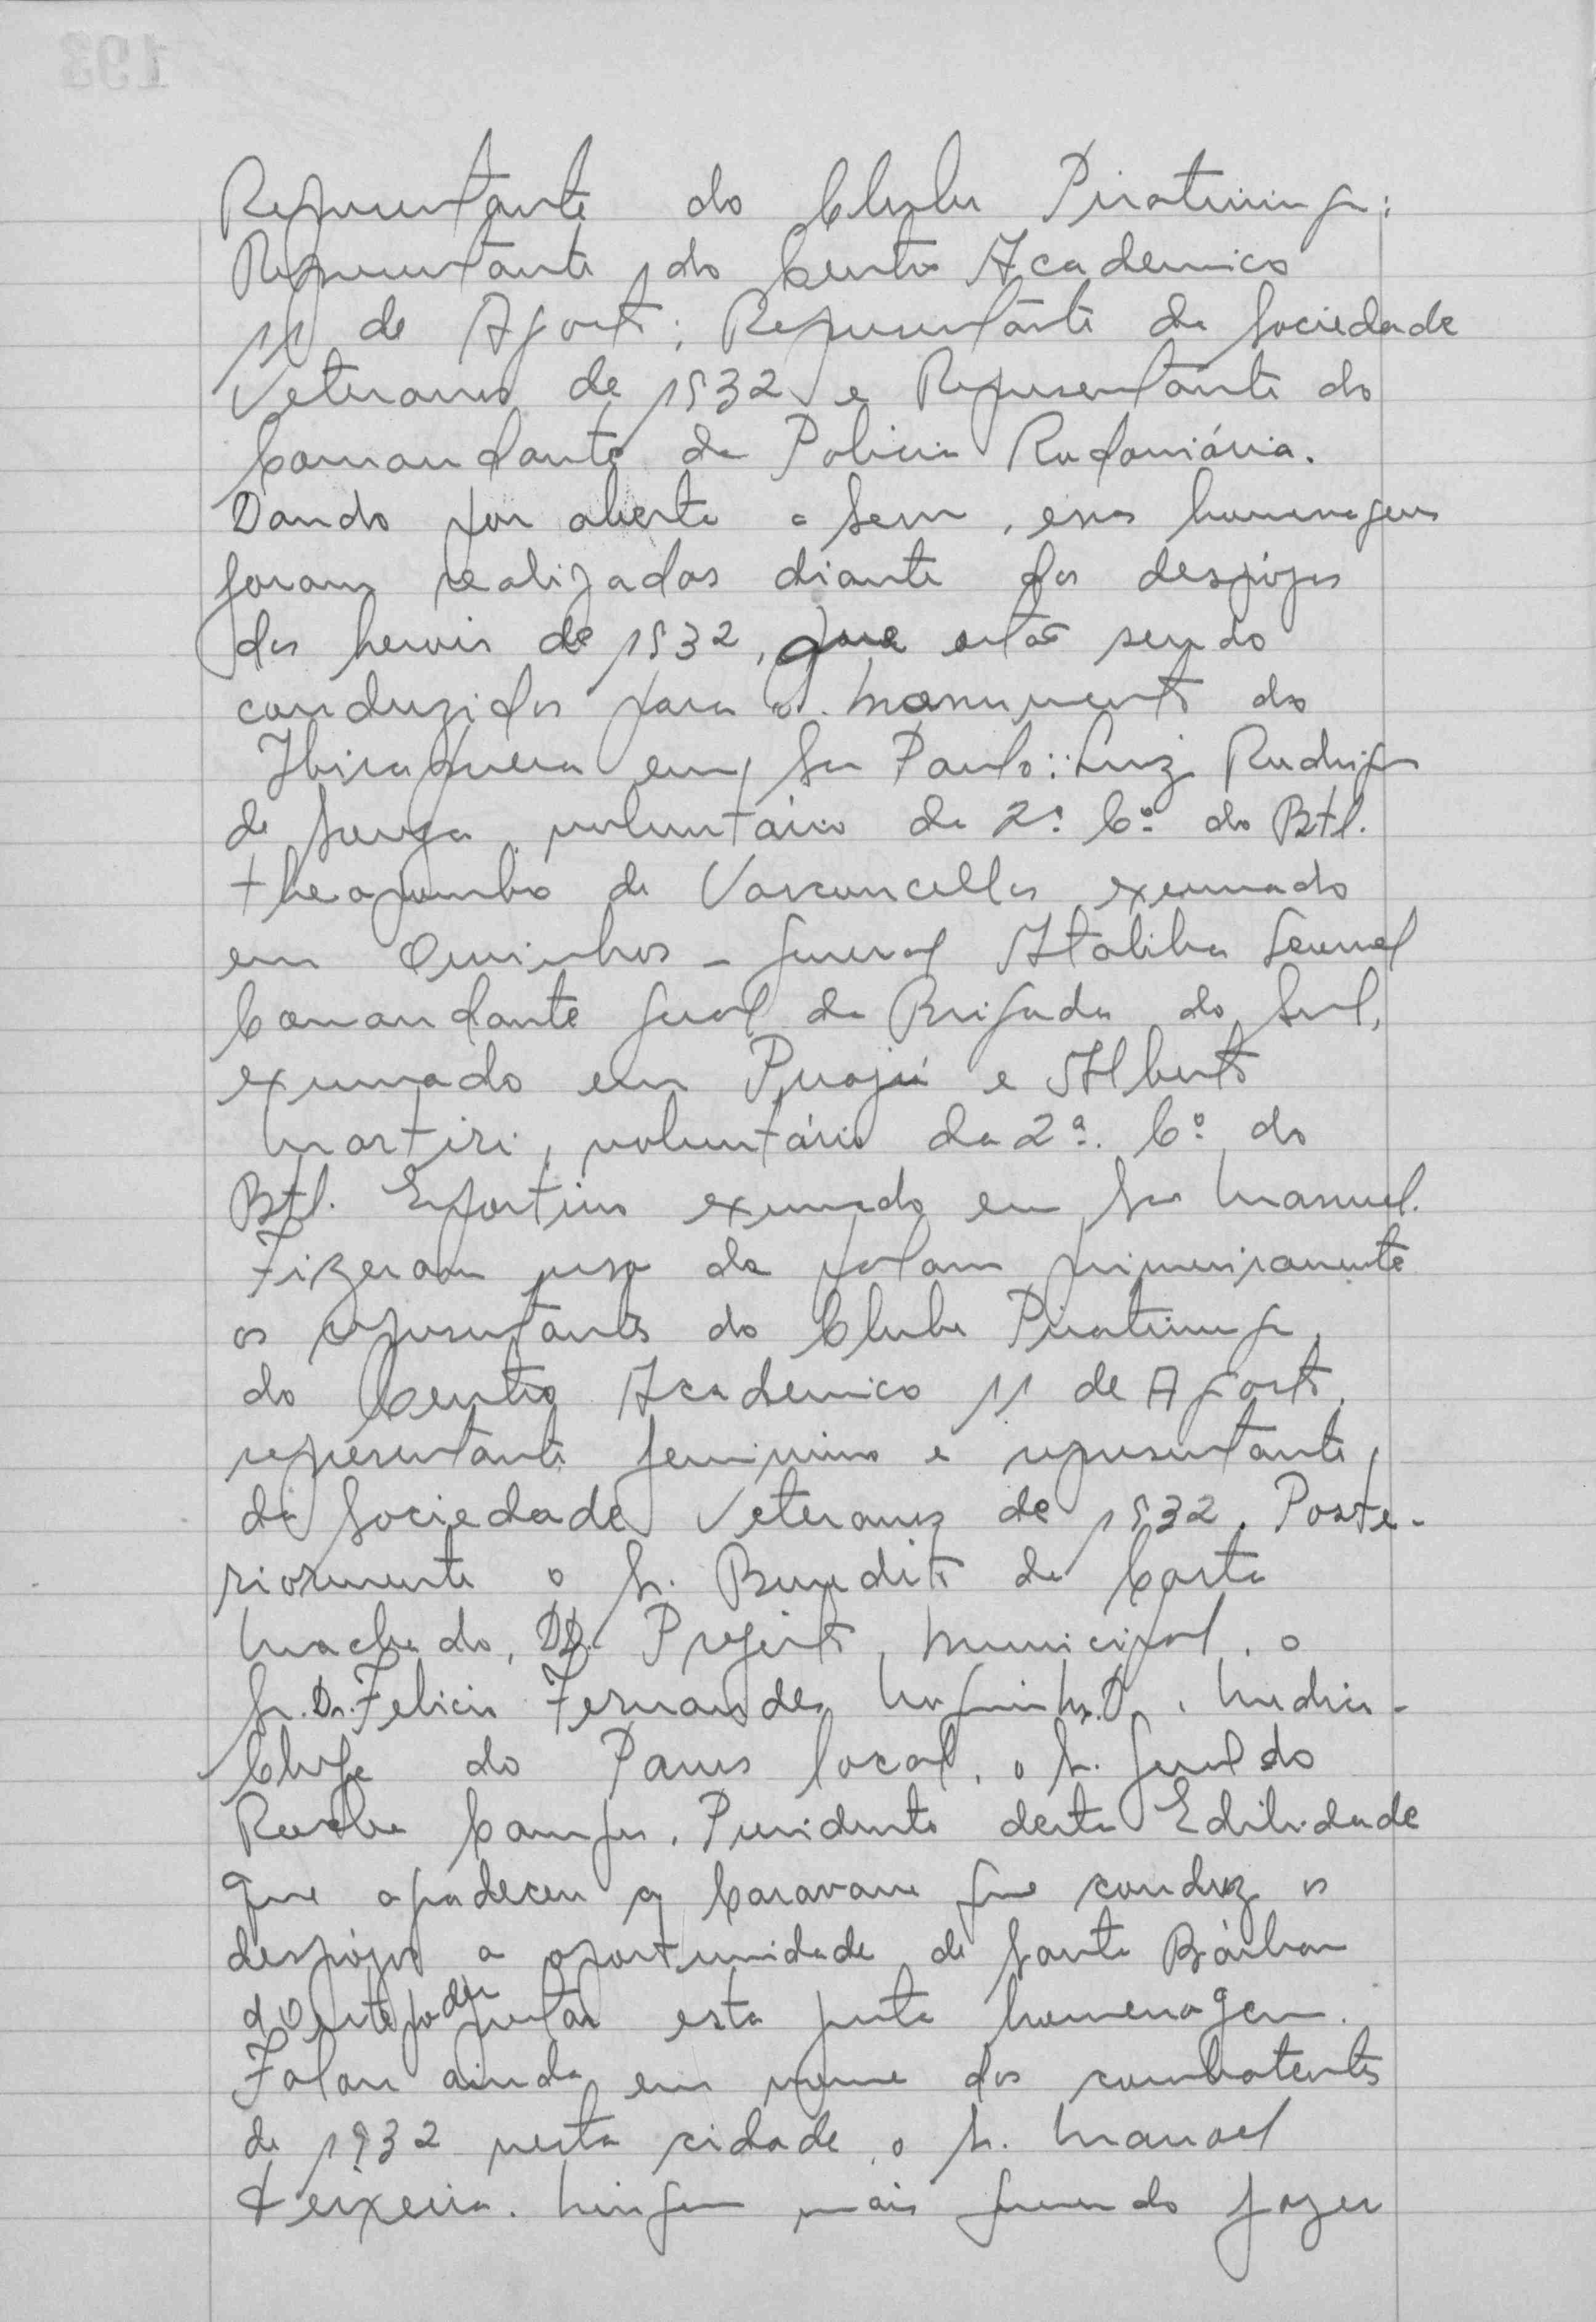 Representante do Clube Piratininga;
Representante do Centro Academico
11 de Agosto; Representante da Sociedade
Veteranos de 1932 e Representante do
Comandante da Policia Rodoviária.
Dando por aberta a Sem, essas homenagens
foram realizadas diante dos despójos
dos herois de 1932, que estão sendo
conduzidos para o Monumento do
Ibirapuera em São Paulo: Luiz Rodrigues
de Souza voluntário da 2ª Cº do Btl.
Theopombo de Vasconcellos exumado
em Ourinhos - General Ataliba Leonel
Comandante geral da Brigada do Sul,
exumado em Piraju e Alberto
Martini, voluntário da 2ª. Cº do
Btl. Esportivo exumado em São Manuel.
Fizeram uso da palavra primeiramente
os representantes do Clube Piratininga,
do Centro Academico 11 de Agosto,
representante feminino e representante
da Sociedade Veteranos de 1932. Poste-
riormente o Sr. Benedito da Costa
Machado, DD. Prefeito Municipal, o
Sr. Dr. Felicio Fernandes, Medico-
Chefe do Pams local, o Sr. Geraldo
Rocha Campos, Presidente desta Edilidade
que agradeceu a Caravana que conduz os
despójos a oportunidade de Santa Bárbara
poder prestar esta justa homenagem.
Falou ainda em nome dos combatentes
de 1932 nesta cidade, o Sr. Manoel
Teixeira. Ninguem mais querendo fazer